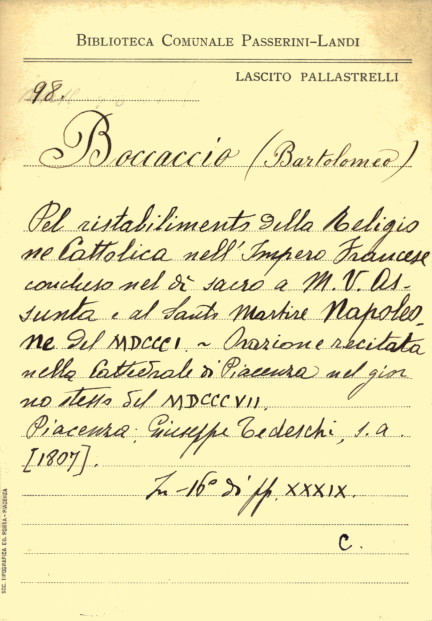 BIBLIOTECA COMUNALE PASSERINI-LANDI
LASCITO PALLASTRELLI
98.
Boccaccio (Bartolomeo)
Pel ristabilimento della Religio
ne Cattolica nell'Impero Francese
concluso nel dì sacro a M. V. As-
sunta e al Santo Martire Napoleo
ne del MDCCCI. ~ Orazione recitata
nella Cattedrale di Piacenza nel gior
no stesso del MDCCCVII.
Piacenza, Giuseppe Tedeschi, s. a.
[1807].
In-16° di pp. XXXIX.
C.
SOC. TIPOGRAFICA ED. PORTA - PIACENZA